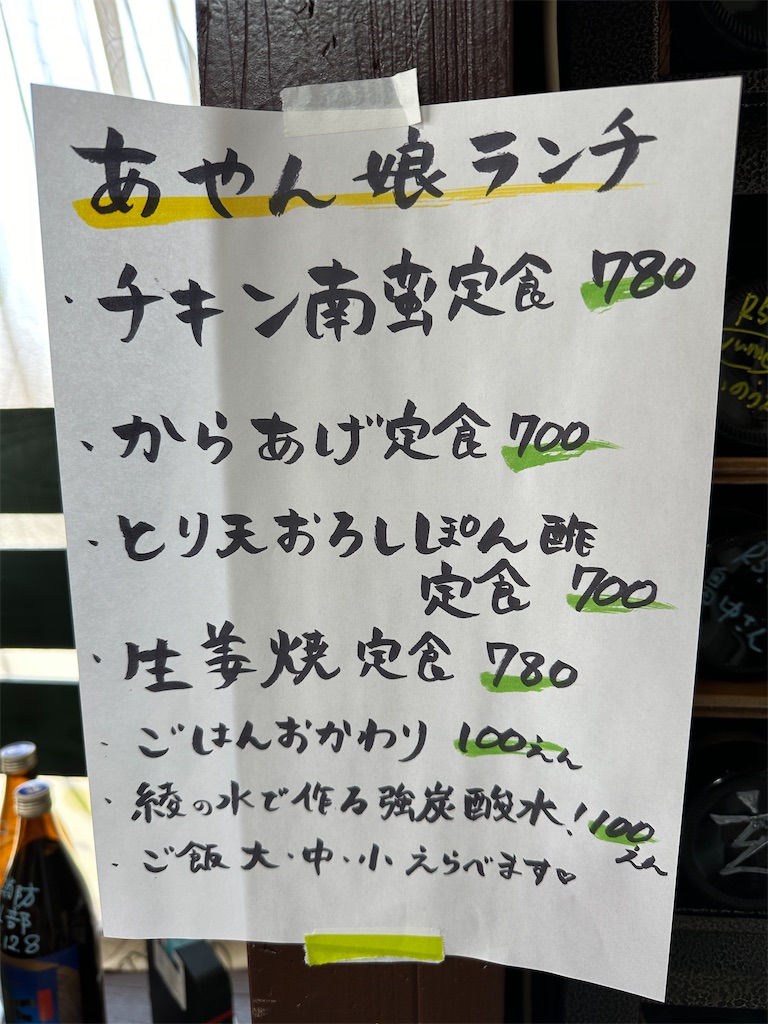 あやん娘ランチ
・チキン南蛮定食 780
・からあげ定食 700
・とり天おろしぽん酢
定食 700
・生姜焼定食 780
・ごはんおかわり 100えん
・綾の水で作る強炭酸水！100
えん
・ご飯 大・中・小 えらべます♡
防
部
128